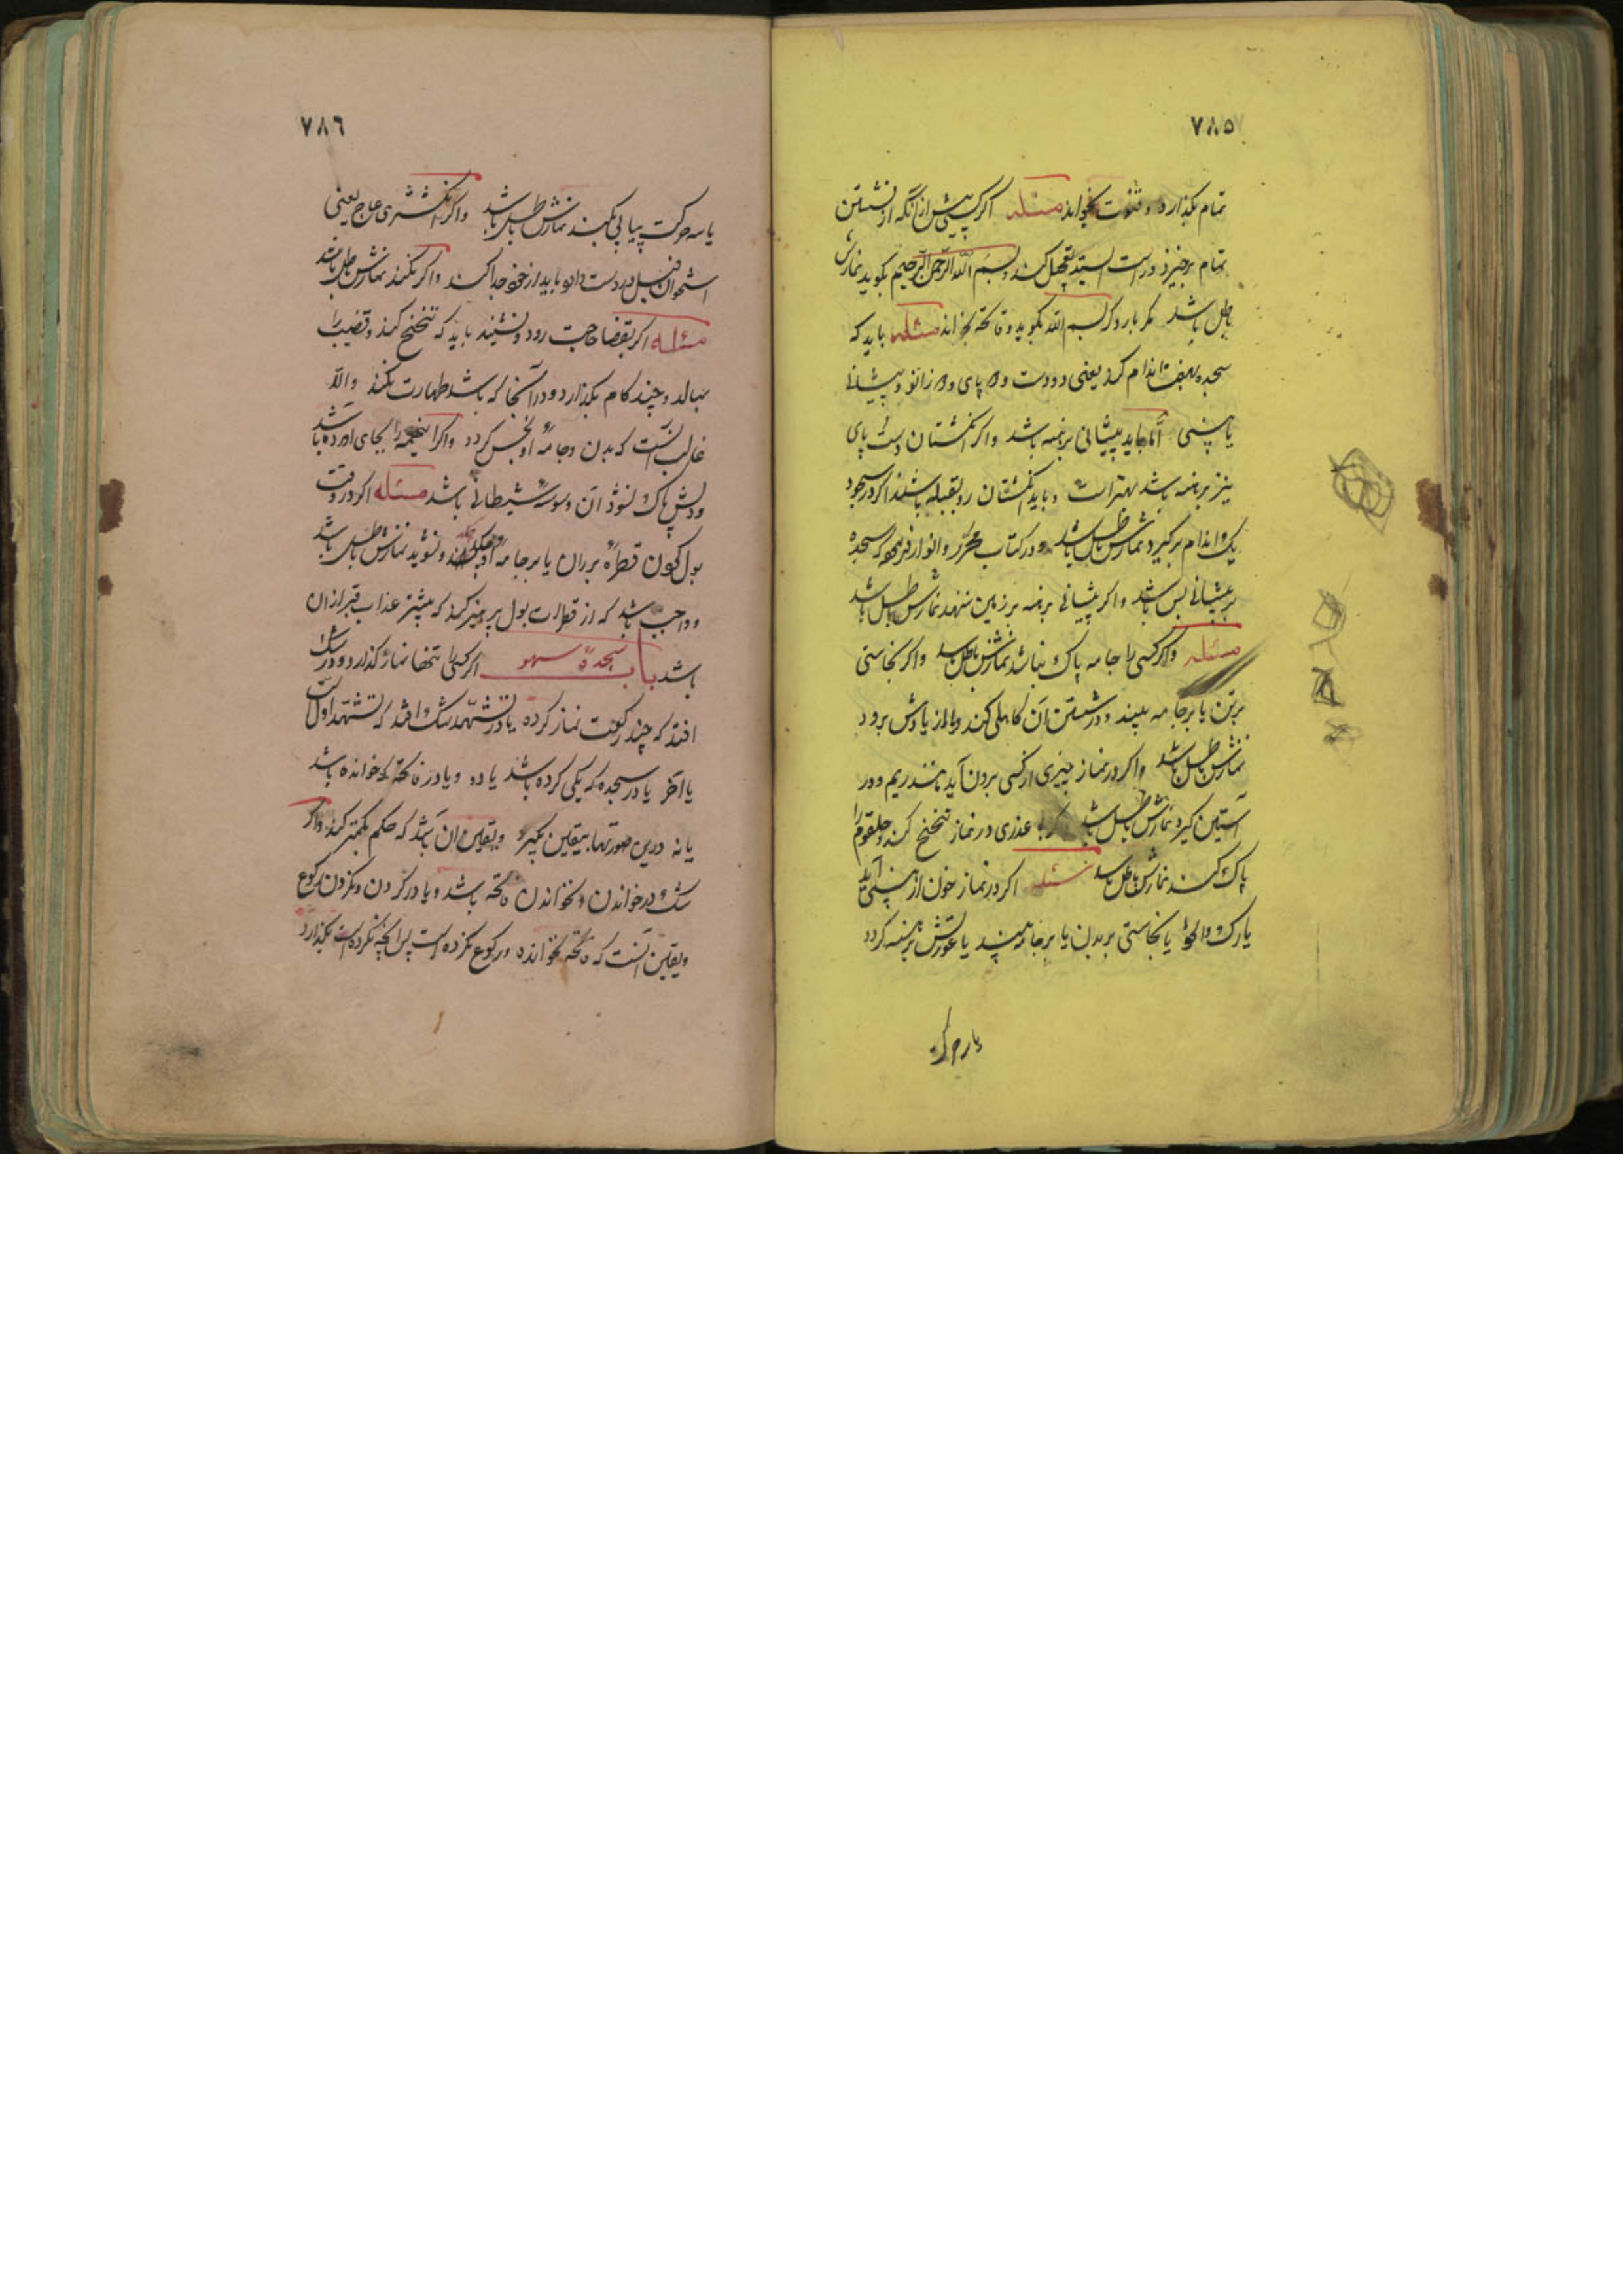 ٧٨٥
تمام بگذارد و قنوت بخواند مسئله اگر کسی پیش از آنکه از نشستن
تمام برخیزد و راست ایستد تعجیل کند و بسم الله الرحمن الرحیم بگوید نمازش
باطل باشد مگر بار دگر بسم الله بگوید و فاتحه بخواند مسئله باید که
سجده بهفت اندام کرد یعنی دو دست و دو پای و دو زانو و پیشانی
یا بینی اما باید پیشانی برهنه باشد و اگر انگشتان دست و پای
نیز برهنه باشد بهتر است و باید انگشتان رو بقبله باشند اگر در سجود
یک اندام برگیرد نمازش باطل باشد و در کتاب محرّر و انوار که سجده
بر پیشانی بس باشد و اگر پیشانی برهنه بر زمین ننهد نمازش باطل باشد
مسئله و اگر کسی را جامه پاک نباشد نمازش باطل باشد و اگر نجاستی
بر تن یا بر جامه ببیند و در شستن آن کاهلی کند و از یادش برود
نمازش باطل باشد و اگر در نماز چیزی از کسی بیرون آید مانند ریم و در
آستین گیرد نمازش باطل باشد عذری در نماز تنحنح کند و حلقوم را
پاک کند نمازش باطل باشد مسئله اگر در نماز خون از بینی آید
یا نجاستی بر بدن یا بر جامه ببیند یا عورتش برهنه گردد
٧٨٦
یا سه حرکت پیاپی بکند نمازش باطل باشد و اگر انگشتری عاج یعنی
استخوان فیل در دست دارد باید از خود جدا کند و اگر نکند نمازش باطل باشد
مسئله اگر بقضا حاجت رود و نشیند باید که تنحنح کند و قضیب را
بمالد و چند گام بگذارد و در آنجا که باشد طهارت نکند والّا
غالب آنست که بدن و جامهٔ او نجس گردد و اگر اینهمه را بجای آورده باشد
و دلش پاک نشود آن وسوسهٔ شیطانی باشد مسئله اگر در وقت
بول کردن قطرهٔ بر ران یا بر جامهٔ او چکد و نشوید نمازش باطل باشد
و واجب باشد که از قطرات بول پرهیز کند که بیشتر عذاب قبر از آن
باشد باب سجدهٔ سهو اگر کسی تنها نماز گذارد و در شک
افتد که چند رکعت نماز کرده یا در تشهد شک افتد که تشهد اول است
یا آخر یا در سجده که یکی کرده باشد یا دو و یا در فاتحه که خوانده باشد
یا نه درین صورتها بیقین بگیرد و یقین آن باشد که حکم بکمتر کند و اگر
شک در خواندن و نخواندن فاتحه باشد و یا در کردن و نکردن رکوع
و یقین آنست که فاتحه نخوانده و رکوع نکرده است پس آنچه نکرده است بگذارد